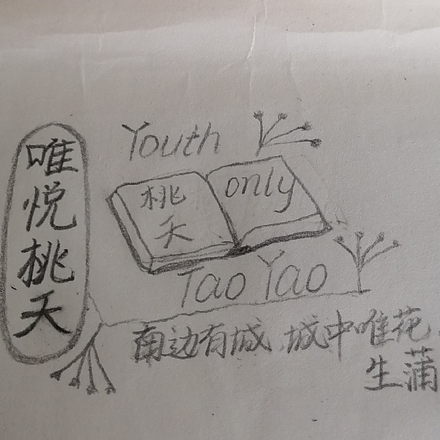 唯悦桃夭
Youth
桃
夭
only
Tao Yao
南边有城 城中唯花
生蒲